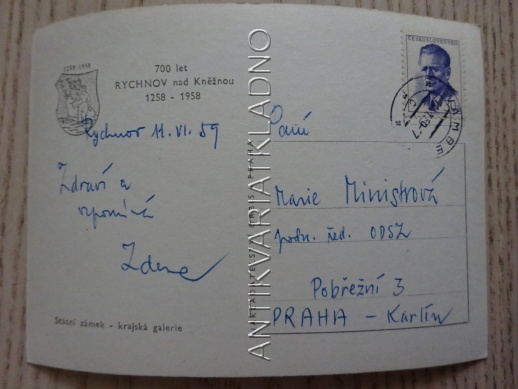 1258 - 1958
700 let
RYCHNOV nad Kněžnou
1258 - 1958
Rychnov 11. VI. 59
Zdraví a
vzpomíná
Zdena
Státní zámek - krajská galerie
ANTIKVARIATKLADNO
ČESKOSLOVENSKO
Paní
Marie Ministrová
podn. řed. ODSZ
Pobřežní 3
PRAHA - Karlín